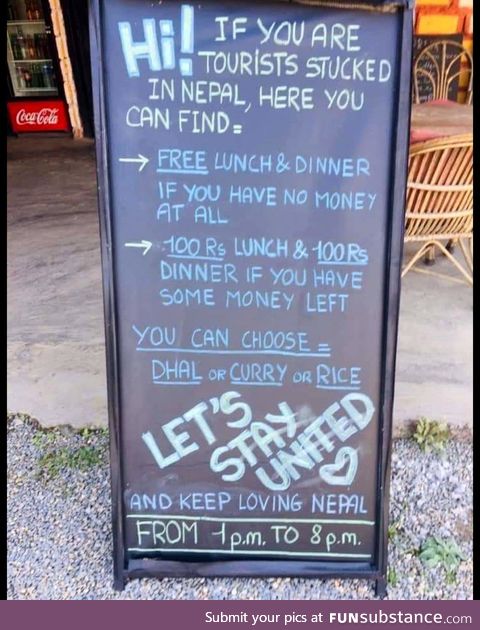 Coca-Cola
Hi! IF YOU ARE
TOURISTS STUCKED
IN NEPAL, HERE YOU
CAN FIND=
→ FREE LUNCH & DINNER
IF YOU HAVE NO MONEY
AT ALL
→ 100 Rs LUNCH & 100 Rs
DINNER IF YOU HAVE
SOME MONEY LEFT
YOU CAN CHOOSE=
DHAL OR CURRY OR RICE
LET'S
STAY
UNITED
AND KEEP LOVING NEPAL
FROM 1 p.m. TO 8 p.m.
Submit your pics at FUNsubstance.com